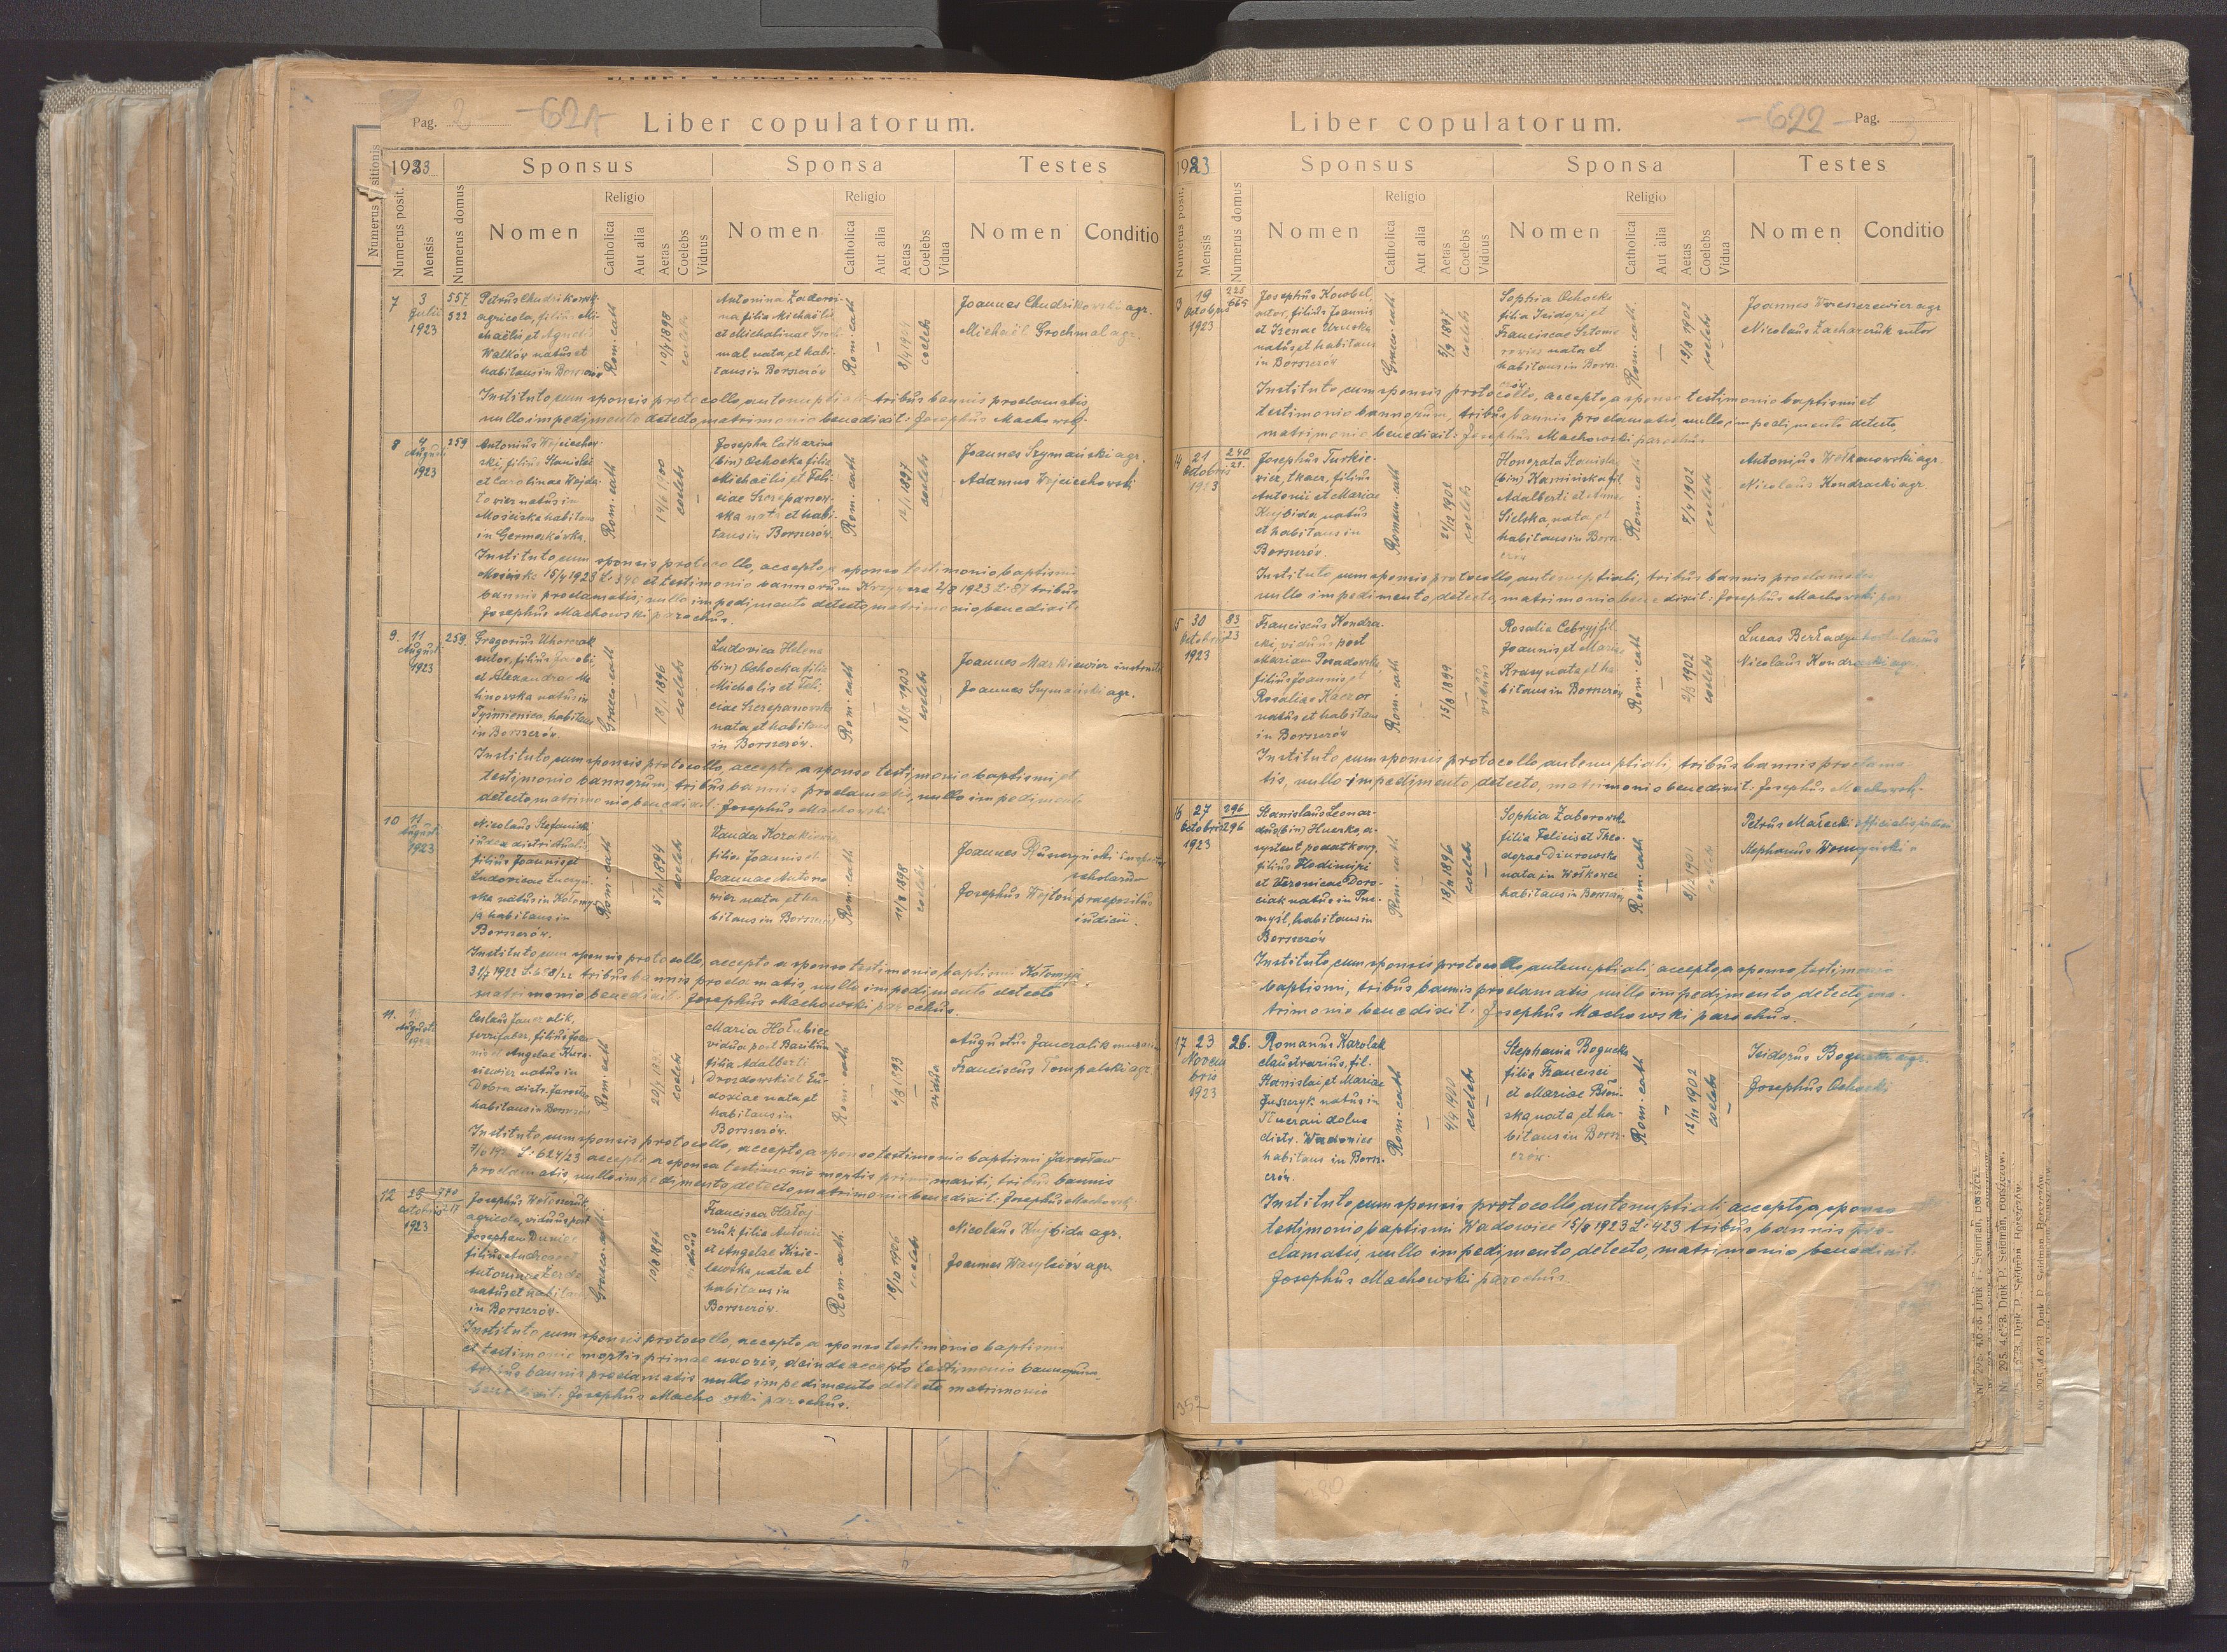 Pag. 2 -621-
Liber copulatorum.
1923
Sponsus
Sponsa
Testes
Numerus posit.
Mensis
Numerus domus
Nomen
Religio
Catholica
Aut alia
Aetas
Coelebs
Viduus
Nomen
Religio
Catholica
Aut alia
Aetas
Coelebs
Vidua
Nomen
Conditio
7
3
Julii
1923
557
522
Petrus Chudzikowski
agricola, filius Mi-
chaëlis et Agnetis
Walków natus et
habitans in Borszczów
Rom. cath
10/7 1898
coelebs
Antonina Zadoro-
na filia Michaëlis
et Michalinae Groch-
mal nata et habi-
tans in Borszczów
Rom. cath
coelebs
Joannes Chudzikowski agr.
Michaël Grochmal agr.
Instituto cum sponsis protocollo antenuptiali tribus bannis proclamatis
nullo impedimento detecto, matrimonio benedixit: Josephus Machowski.
8
4
Augusti
1923
259
Antonius Wojciechow-
ski, filius Stanislai
et Carolinae Wojda-
łowicz natus in
Mościska habitans
in Germakówka.
Rom. cath
14/6 1900
coelebs
Josepha Catharina
(bin) Ochocka filia
Michaëlis et Feli-
ciae Szczepanow-
ska nata et habi-
tans in Borszczów.
Rom. cath
12/1 1897
coelebs
Joannes Szymański agr.
Adamus Wojciechowski
Instituto cum sponsis protocollo, accepto a sponso testimonio baptismi
Mościska 15/4 1923 L: 340 et testimonio bannorum Krzywcze 2/8 1923 L: 87 tribus
bannis proclamatis, nullo impedimento detecto matrimonio benedixit:
Josephus Machowski parochus.
9.
11
Augusti
1923
259.
Gregorius Uhorczak
sutor, filius Jacobi
et Alexandrae Ma-
linowska natus in
Tyśmienica, habitans
in Borszczów.
Graeco-cath
18/1 1896
coelebs
Ludovica Helena
(bin) Ochocka filia
Michalis et Feli-
ciae Szczepanowska
nata et habitans
in Borszczów.
Rom. cath
18/8 1903
coelebs
Joannes Markiewicz
Joannes Szymański agr.
Instituto cum sponsis protocollo, accepto a sponso testimonio baptismi et
testimonio bannorum, tribus bannis proclamatis, nullo impedimento
detecto matrimonio benedixit: Josephus Machowski
10
11
Augusti
1923
Nicolaus Stefaniski
iudex districtualis
filius Joannis et
Ludovicae
natus in Kołomy-
ja habitans in
Borszczów.
Rom. cath
5/12 1894
coelebs
Vanda Kozakiewicz
filia Joannis et
Joannae Antono-
wicz nata et ha-
bitans in Borszczów
Rom. cath
11/8 1898
coelebs
Joannes Ruszczyński inspector
scholarum
Josephus Wojtoń praepositus
iudicii.
Instituto cum sponsis protocollo, accepto a sponso testimonio baptismi Kołomyja
31/7 1922 tribus bannis proclamatis, nullo impedimento detecto
matrimonio benedixit: Josephus Machowski parochus.
11.
Augusti
1923
Ceslaus Janczalik,
ferrifaber, filius Joan-
nis et Angelae
natus in
Dobra distr. Jarosław
habitans in Borszczów
Rom. cath
coelebs
Maria Hołubiec
vidua post Basilium
filia Adalberti
Drozdowski et Eu-
doxiae nata et
habitans in
Borszczów.
Rom. cath
4/8 1893
vidua
Augustus Janczalik
Franciscus Tompalski agr.
Instituto cum sponsis protocollo, accepto a sponso testimonio baptismi Jarosław
L: 624/23 accepto a sponsa testimonio mortis primi mariti, tribus bannis
proclamatis, nullo impedimento detecto matrimonio benedixit: Josephus Machowski
12
Octobris
1923
Josephus Wołoszczuk,
agricola, viduus post
Josepham
filius Andreae et
Antoninae
natus et habitans
in Borszczów.
Graeco-cath.
10/8 1896
viduus
Francisca Hałaj-
czuk filia Antonii
et Angelae Kisie-
lewska, nata et
habitans in
Borszczów.
Rom. cath.
16/10 1906
coelebs
Nicolaus Kujbida agr.
Joannes Wasylciów agr.
Instituto cum sponsis protocollo, accepto a sponso testimonio baptismi
et testimonio mortis primae uxoris, deinde accepto testimonio bannorum
tribus bannis proclamatis nullo impedimento detecto matrimonio
benedixit: Josephus Machowski parochus.
Liber copulatorum.
-622- Pag.
1923
Sponsus
Sponsa
Testes
Numerus posit.
Mensis
Numerus domus
Nomen
Religio
Catholica
Aut alia
Aetas
Coelebs
Viduus
Nomen
Religio
Catholica
Aut alia
Aetas
Coelebs
Vidua
Nomen
Conditio
19
Octobris
1923
225
665
Josephus Kowbel,
sutor, filius Joannis
et Irenae
natus et habitans
in Borszczów
Graeco-cath.
5/9 1897
coelebs
Sophia Ochocka
filia Isidori et
Franciscae
nata et
habitans in Borsz-
czów
Rom. cath.
19/8 1902
coelebs
Joannes agr
Nicolaus Zacharczuk sutor
Instituto cum sponsis protocollo, accepto a sponso testimonio baptismi et
testimonio bannorum, tribus bannis proclamatis, nullo impedimento detecto,
matrimonio benedixit: Josephus Machowski parochus
21
Octobris
1923
240
21.
Josephus Turkie-
wicz, tkacz, filius
Antonii et Mariae
Kujbida, natus
et habitans in
Borszczów.
Romano-cath
21/12 1902
coelebs
Honorata Stanisla
(bin) Kaminska fil
Adalberti et Annae
Sielska, nata et
habitans in Borsz-
czów
Rom. cath
7/4 1902
coelebs
Antonius Wołkanowski agr.
Nicolaus Kondracki agr.
Instituto cum sponsis protocollo antenuptiali, tribus bannis proclamatis,
nullo impedimento detecto, matrimonio benedixit: Josephus Machowski par
30
Octobris
1923
83
23
Franciscus Kondra-
cki, viduus post
Mariam Posadowska,
filius Joannis et
Rosaliae Kaczor
natus et habitans
in Borszczów
Rom. cath
15/8 1899
viduus
Rosalia Cebryj fil.
Joannis et Mariae
Krasny nata et ha-
bitans in Borszczów
Rom. cath
2/3 1902
coelebs
Lucas Berładyn
Nicolaus Kondracki agr.
Instituto cum sponsis protocollo antenuptiali, tribus bannis proclama-
tis, nullo impedimento detecto, matrimonio benedixit: Josephus Machowski
16
27
Octobris
1923
296
296
Stanislaus Leonar-
dus (bin) Huczko a-
systent podatkowy,
filius Wlodimiri
et Veronicae Doro-
ciak natus in Prze-
myśl, habitans in
Borszczów
Rom. cath
18/11 1896
coelebs
Sophia Zaborowska
filia Felicis et Theo-
dorae Dżurowska
nata in Wołkowce
habitans in Borszczów
Rom. cath
8/12 1901
coelebs
Petrus Małecki officialis
Stephanus
Instituto cum sponsis protocollo antenuptiali accepto a sponso testimonio
baptismi, tribus bannis proclamatis nullo impedimento detecto ma-
trimonio benedixit: Josephus Machowski parochus.
17
23
Novem
bris
1923
26.
Romanus Karolak
claustrarius, fil.
Stanislai et Mariae
Juszczyk natus in
Tłuczań dolna
distr. Wadowice
habitans in Borsz-
czów.
Rom. cath
4/4 1900
coelebs
Stephania Bogucka
filia Francisci
et Mariae Błoń-
ska nata et ha-
bitans in Borsz-
czów.
Rom. cath
12/11 1902
coelebs
Isidorus Bogucki agr.
Josephus Ochocki
Instituto cum sponsis protocollo antenuptiali accepto a sponso
testimonio baptismi Wadowice 15/8 1923 L: 423 tribus bannis pro-
clamatis, nullo impedimento detecto, matrimonio benedixit:
Josephus Machowski parochus.
352